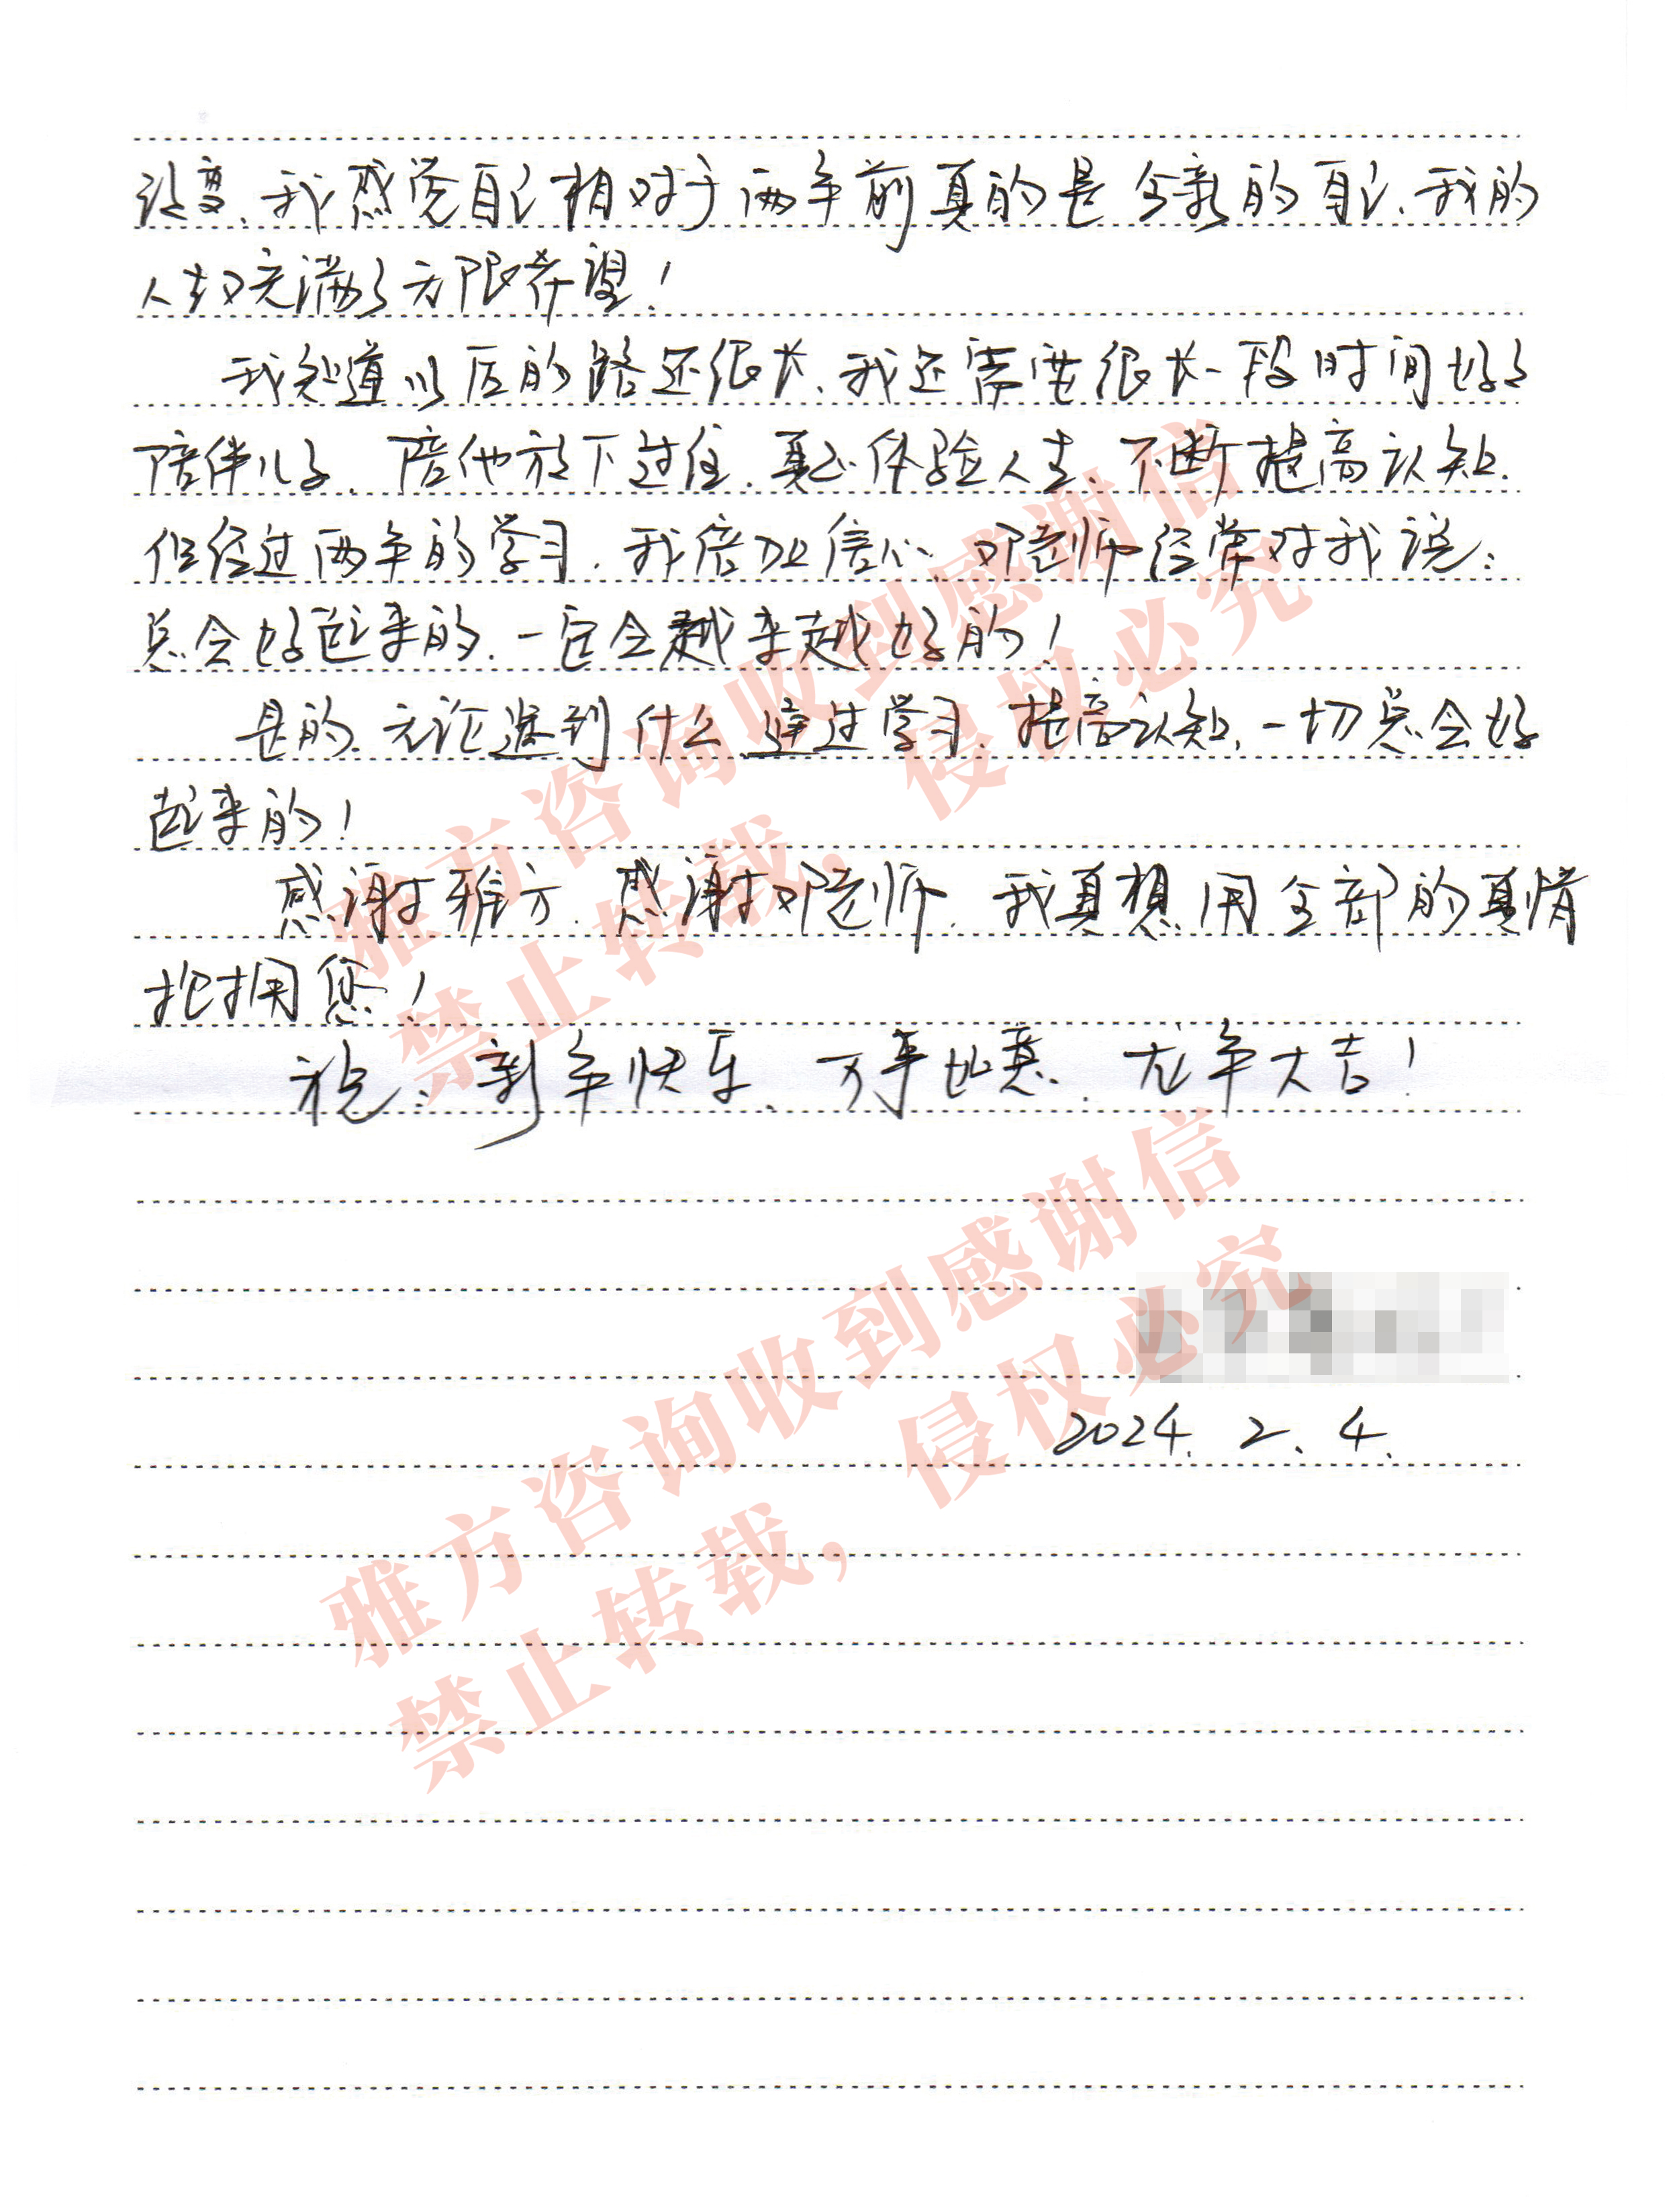 没变、我感觉自己相对于两年前真的是全新的自己、我的
人生又充满了无限希望！
我知道以后的路还很长、我还需要很长一段时间好好
陪伴儿子、陪他放下过往、真正体验人生、不断提高认知.
但经过两年的学习、我倍加信心、邓老师经常对我说：
总会好起来的、一定会越来越好的！
是的、无论遇到什么、通过学习、提高认知、一切总会好
起来的！
感谢雅方、感谢邓老师、我真想用全部的真情
抱拥您！
祝：新年快乐、万事如意、龙年大吉！
2024. 2. 4.
雅方咨询收到感谢信
禁止转载，侵权必究
雅方咨询收到感谢信
禁止转载，侵权必究